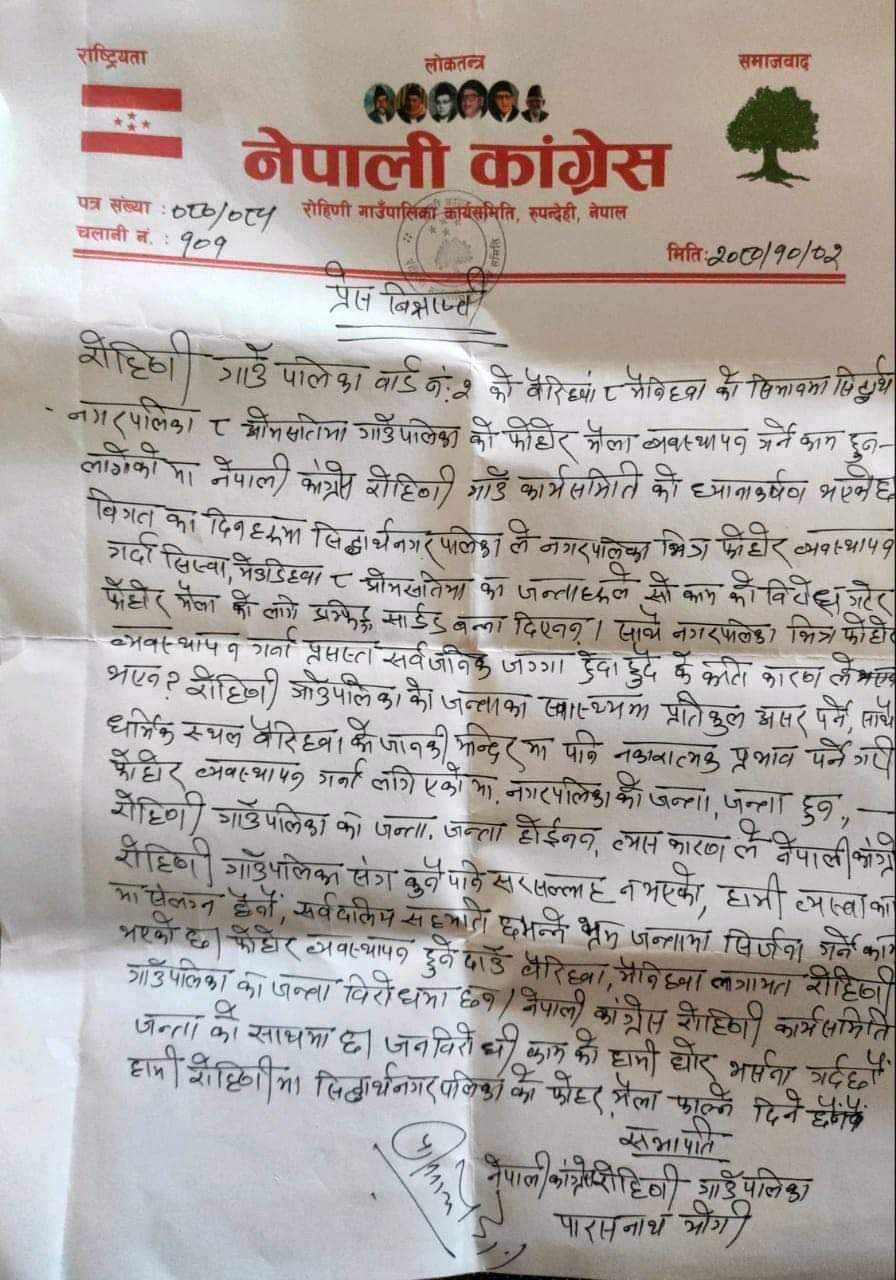 राष्ट्रियता
लोकतन्त्र
समाजवाद
नेपाली कांग्रेस
रोहिणी गाउँपालिका कार्यसमिति, रुपन्देही, नेपाल
पत्र संख्या : ०८०/०८५
चलानी नं. : १०१
मिति: २०८०/१०/०२
प्रेस बिज्ञप्ती
रोहिणी गाउँ पालिका वार्ड नं: २ को बैरिहवां र मैनिहवा को सिमानमा सिद्धार्थ
नगरपालिका र ओमसतिमा गाउँपालिका को फोहोर मैला व्यवस्थापन गर्ने काम हुन-
लागेको मा नेपाली कांग्रेस रोहिणी गाउँ कार्यसमिति को ध्यानाकर्षण भएको छ
विगत का दिनहरुमा सिद्धार्थनगरपालिका ले नगरपालिका भित्र फोहोर व्यवस्थापन
गर्दा सिस्वा, मेउडिहवा र ओमसतिमा का जन्ताहरुले सो काम को विरोध गरेर
फोहोर मैला को लागि सार्डड बन्ना दिएनन्। साथै नगरपालिका भित्र फोहोर
व्यवस्थापन गर्ना प्रसस्त सर्वजनिक जग्गा हुँदा हुदै के कति कारण ले
भएन? रोहिणी गाँउपालिका का जन्ताका स्वास्थ्यमा प्रतिकुल असर पर्ने, साथै
धार्मिक स्थल बैरिहवा के जानकी मन्दिर मा पनि नकारात्मक प्रभाव पर्ने गरी
फोहोर व्यवस्थापन गर्ना लागि एको मा, नगरपालिका को जन्ता, जन्ता हुन, -
रोहिणी गाउँपालिका का जन्ता, जन्ता होईनन, त्यस कारण ले नेपाली कांग्रे
रोहिणी गाउँपालिका संग कुनै पनि सरसल्लाह न भएको, हामी त्यस्वा का
मा संलग्न छैनौं, सर्वदलिय सहमति छ भन्ने भ्रम जन्तामा सिर्जना गर्ने काम
भएको छ। फोहोर व्यवस्थापन हुने ठाउँ बैरिहवा, मैनिहवा लगायत रोहिणी
गाउँपालिका का जन्ता विरोधमा छन्। नेपाली कांग्रेस रोहिणी कार्यसमिति
जन्ता को साथमा छ। जनविरोधी काम को हामी घोर भर्सना गर्दछौं
हामी रोहिणी मा सिद्धार्थनगरपालिका को फोहर मैला फाल्न दिने
सभापति
नेपाली कांग्रेस रोहिणी गाउँपालिका
पारसनाथ योगी